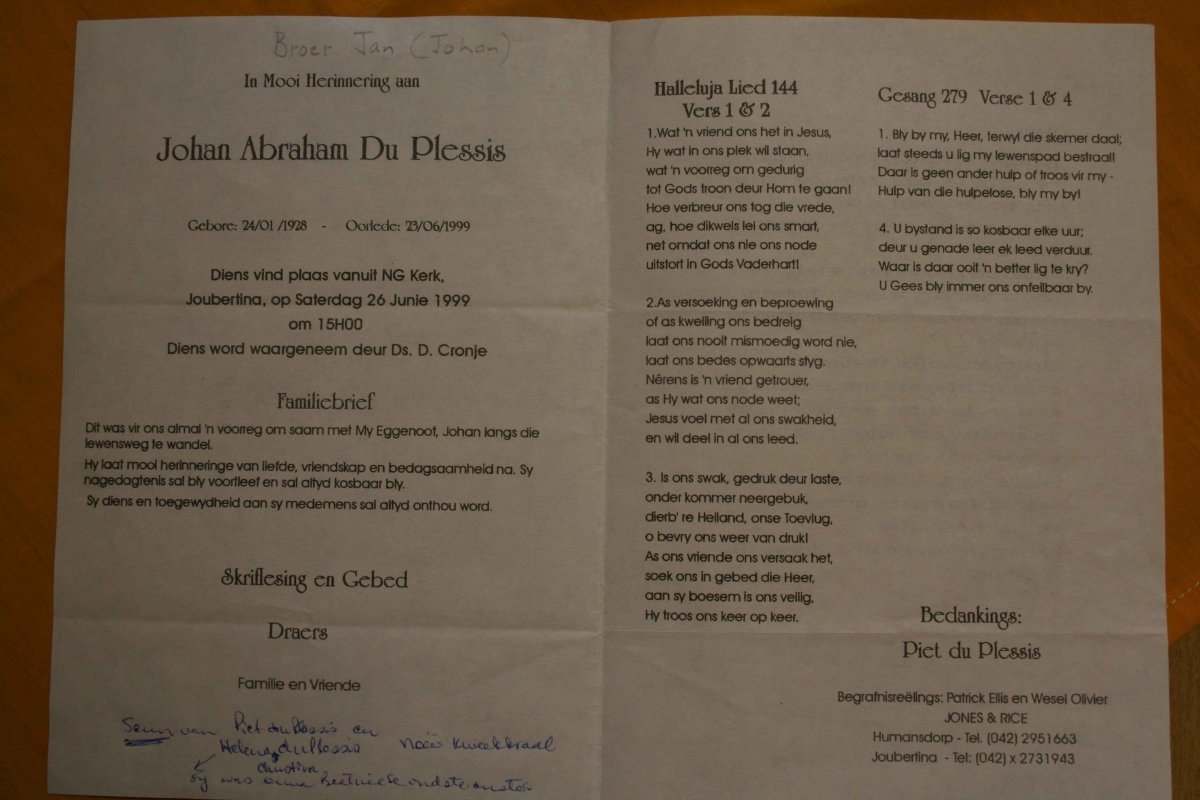 Broer Jan (Johan)
In Mooi Herinnering aan
Johan Abraham Du Plessis
Gebore: 24/01 /1928 - Oorlede: 23/06/1999
Diens vind plaas vanuit NG Kerk,
Joubertina, op Saterdag 26 Junie 1999
om 15H00
Diens word waargeneem deur Ds. D. Cronje
Familiebrief
Dit was vir ons almal 'n voorreg om saam met My Eggenoot, Johan langs die
lewensweg te wandel.
Hy laat mooi herinneringe van liefde, vriendskap en bedagsaamheid na. Sy
nagedagtenis sal bly voortleef en sal altyd kosbaar bly.
Sy diens en toegewydheid aan sy medemens sal altyd onthou word.
Skriflesing en Gebed
Draers
Familie en Vriende
Seun van Piet du Plessis en
Helena du Plessis
Christina
Sy was
Halleluja Lied 144
Vers 1 & 2
1.Wat 'n vriend ons het in Jesus,
Hy wat in ons plek wil staan,
wat 'n voorreg om gedurig
tot Gods troon deur Hom te gaan!
Hoe verbreur ons tog die vrede,
ag, hoe dikwels lei ons smart,
net omdat ons nie ons node
uitstort in Gods Vaderhart!
2.As versoeking en beproewing
of as kwelling ons bedreig
laat ons nooit mismoedig word nie,
laat ons bedes opwaarts styg.
Nêrens is 'n vriend getrouer,
as Hy wat ons node weet;
Jesus voel met al ons swakheid,
en wil deel in al ons leed.
3. Is ons swak, gedruk deur laste,
onder kommer neergebuk,
dierb' re Heiland, onse Toevlug,
o bevry ons weer van druk!
As ons vriende ons versaak het,
soek ons in gebed die Heer,
aan sy boesem is ons veilig,
Hy troos ons keer op keer.
Gesang 279 Verse 1 & 4
1. Bly by my, Heer, terwyl die skemer daal;
laat steeds u lig my lewenspad bestraal!
Daar is geen ander hulp of troos vir my -
Hulp van die hulpelose, bly my by!
4. U bystand is so kosbaar elke uur;
deur u genade leer ek leed verduur.
Waar is daar ooit 'n better lig te kry?
U Gees bly immer ons onfeilbaar by.
Bedankings:
Piet du Plessis
Begrafnisreëlings: Patrick Ellis en Wesel Olivier
JONES & RICE
Humansdorp - Tel. (042) 2951663
Joubertina - Tel: (042) x 2731943